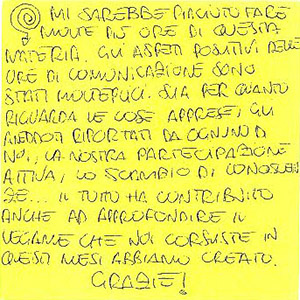 MI SAREBBE PIACIUTO FARE
MOLTE PIÙ ORE DI QUESTA
MATERIA. GLI ASPETTI POSITIVI DELLE
ORE DI COMUNICAZIONE SONO
STATI MOLTEPLICI. SIA PER QUANTO
RIGUARDA LE COSE APPRESE, GLI
ANEDDOTI RIPORTATI DA OGNUNO DI
NOI, LA NOSTRA PARTECIPAZIONE
ATTIVA, LO SCAMBIO DI CONOSCEN
ZE... IL TUTTO HA CONTRIBUITO
ANCHE AD APPROFONDIRE IL
LEGAME CHE NOI CORSISTE IN
QUESTI MESI ABBIAMO CREATO.
GRAZIE!